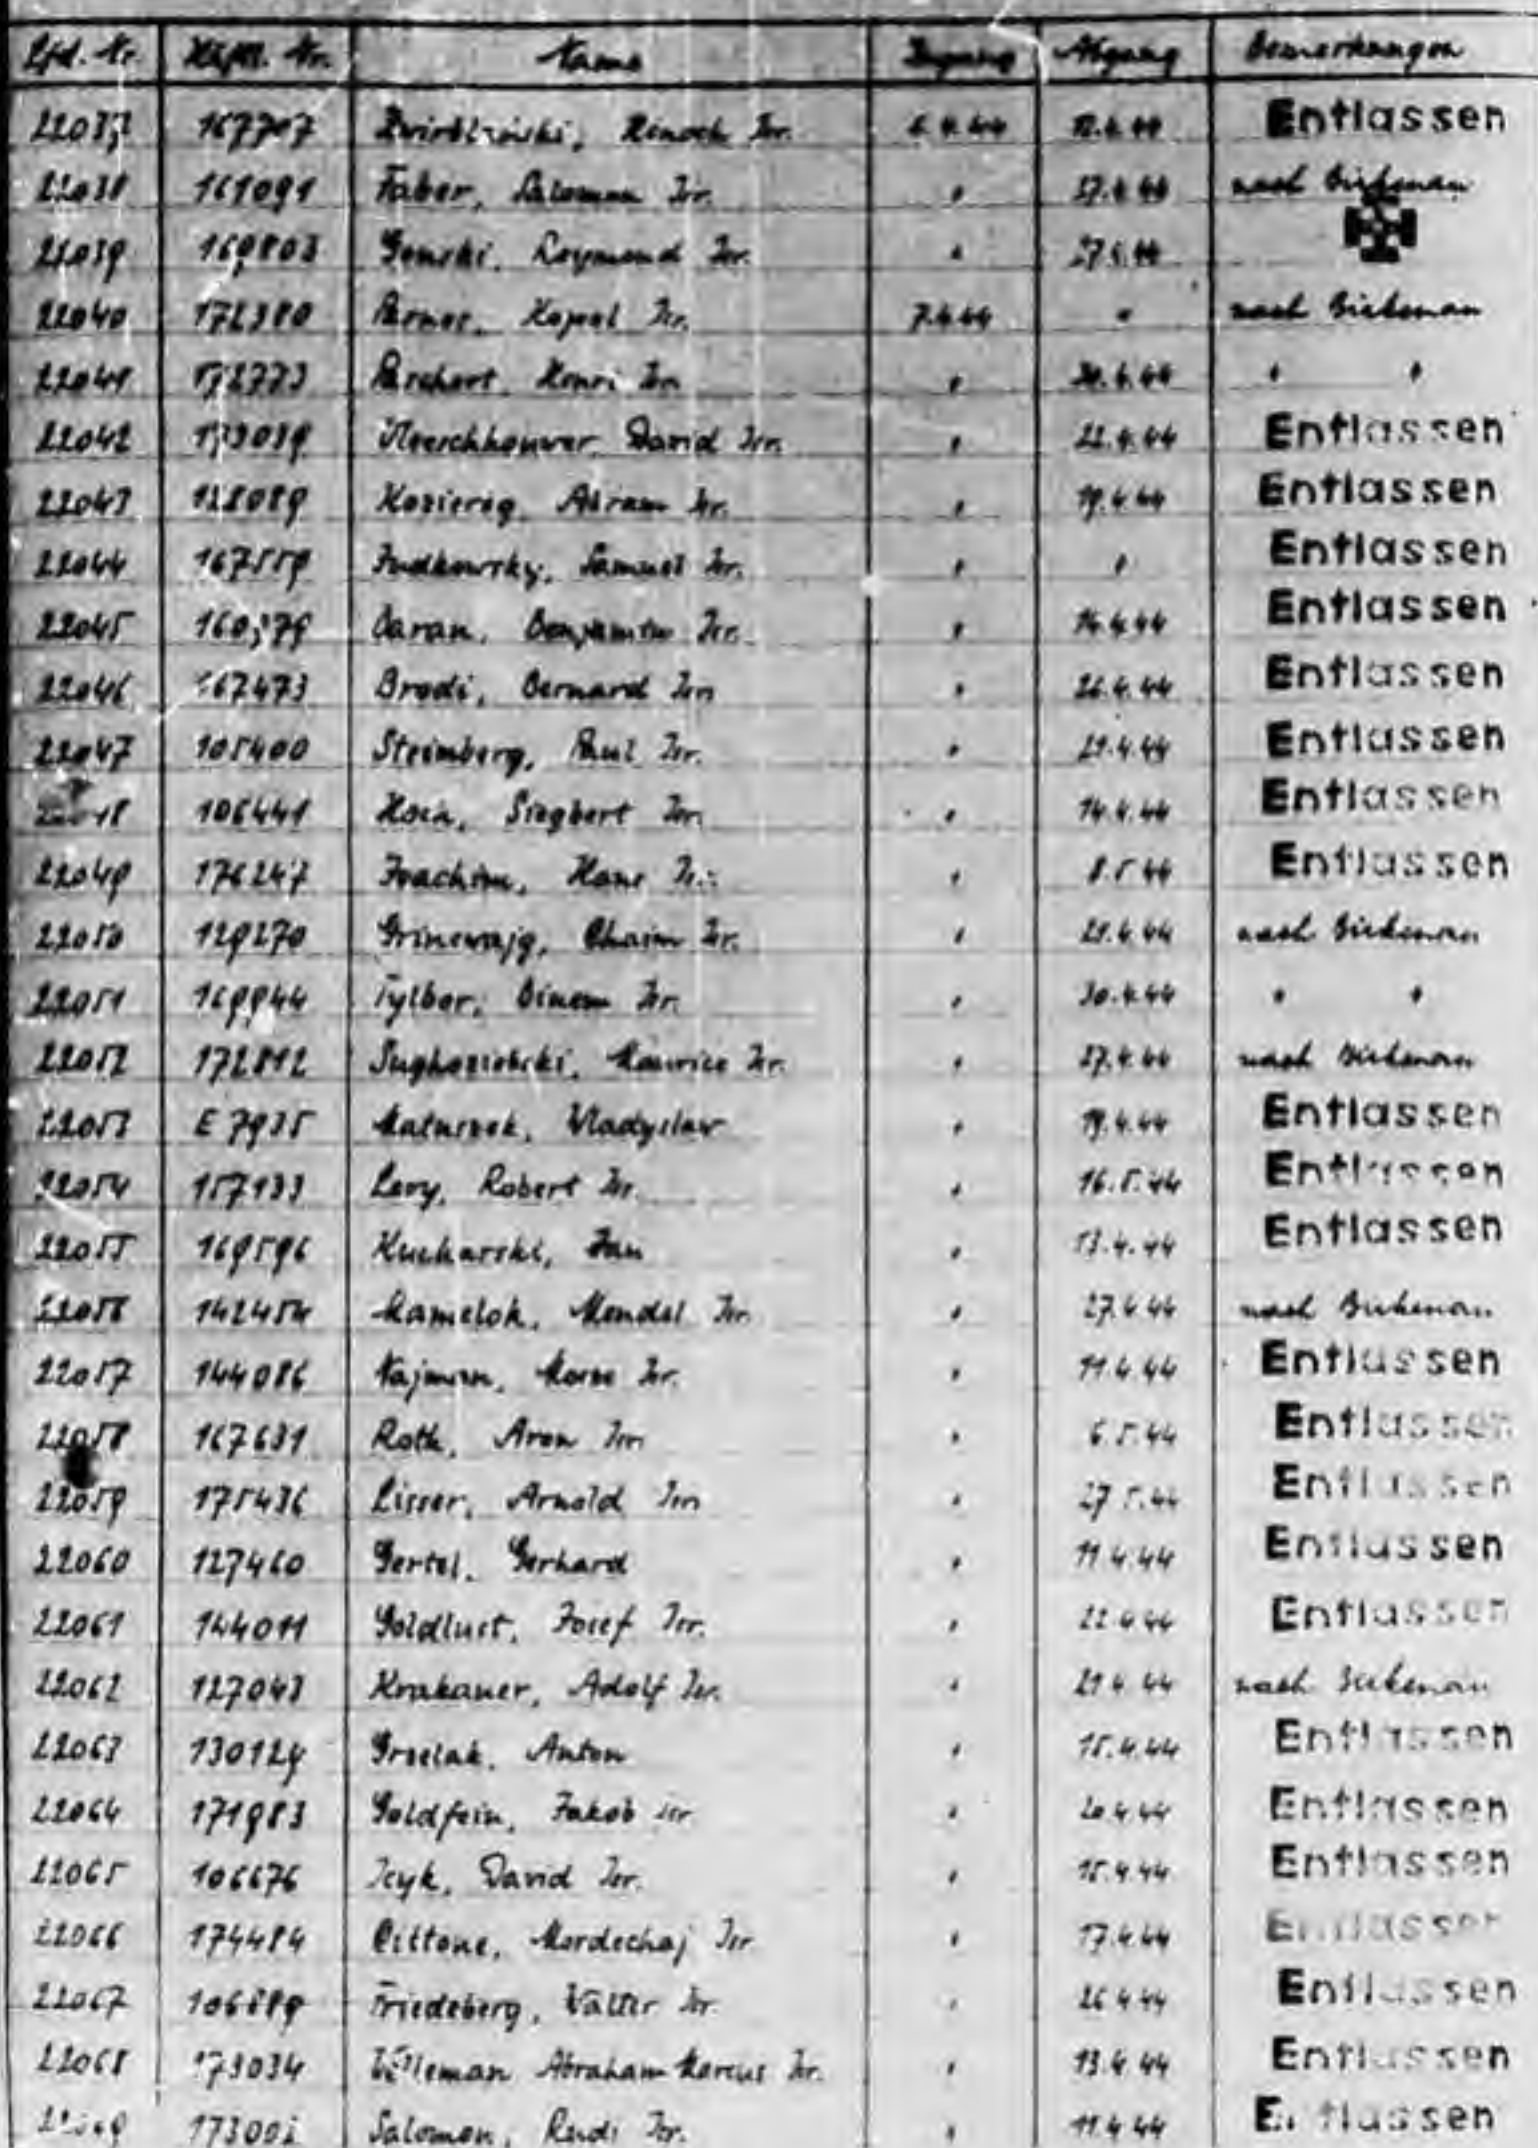 Lfd. Nr. Häftl. Nr. Name Zugang Abgang Bemerkungen
22037 167707 Henoch Isr. 6.4.44 12.4.44 Entlassen
22038 161091 Faber, Salomon Isr. " 27.4.44 nach Birkenau
22039 169803 Gonski, Raymond Isr. " 27.4.44
22040 172380 Parnes, Kopel Isr. 7.4.44 " nach Birkenau
22041 172773 Henri Isr. " 30.4.44 " "
22042 173039 David Isr. " 22.4.44 Entlassen
22043 128089 Abram Isr. " 19.4.44 Entlassen
22044 167559 Judkowsky, Samuel Isr. " " Entlassen
22045 Baran, Benjamin Isr. " 14.4.44 Entlassen
22046 167473 Brodi, Bernard Isr. " 26.4.44 Entlassen
22047 105400 Steimberg, Paul Isr. " 29.4.44 Entlassen
106441 Siegbert Isr. " 14.4.44 Entlassen
22049 176247 Joachim, Hans Isr. " 8.5.44 Entlassen
22050 129270 Grinewajg, Chaim Isr. " 29.4.44 nach Birkenau
22051 169944 Fylbor, Binem Isr. " 30.4.44 " "
22052 172812 Maurice Isr. " 27.4.44 nach Birkenau
22053 E 7935 Matuszek, Wladyslaw " 19.4.44 Entlassen
22054 157133 Levy, Robert Isr. " 16.5.44 Entlassen
22055 169596 Kucharski, Jan " 13.4.44 Entlassen
22056 142454 Mamelok, Mendel Isr. " 27.4.44 nach Birkenau
22057 144086 Najman, Isr. " 11.4.44 Entlassen
22058 167631 Roth, Aron Isr. " 6.5.44 Entlassen
22059 175436 Lisser, Arnold Isr. " 27.5.44 Entlassen
22060 127460 Gertel, Gerhard " 11.4.44 Entlassen
22061 144011 Goldlust, Josef Isr. " 22.4.44 Entlassen
22062 127043 Krakauer, Adolf Isr. " 21.4.44 nach Birkenau
22063 130129 Grzelak, Anton " 15.4.44 Entlassen
22064 171983 Goldfein, Jakob Isr. " 20.4.44 Entlassen
22065 106676 Icyk, David Isr. " 15.4.44 Entlassen
22066 174484 Cittone, Mordechaj Isr. " 17.4.44 Entlassen
22067 106889 Friedeberg, Walter Isr. " 26.4.44 Entlassen
22068 173034 Abraham Marcus Isr. " 13.4.44 Entlassen
22069 Salomon, Rudi Isr. " 11.4.44 Entlassen